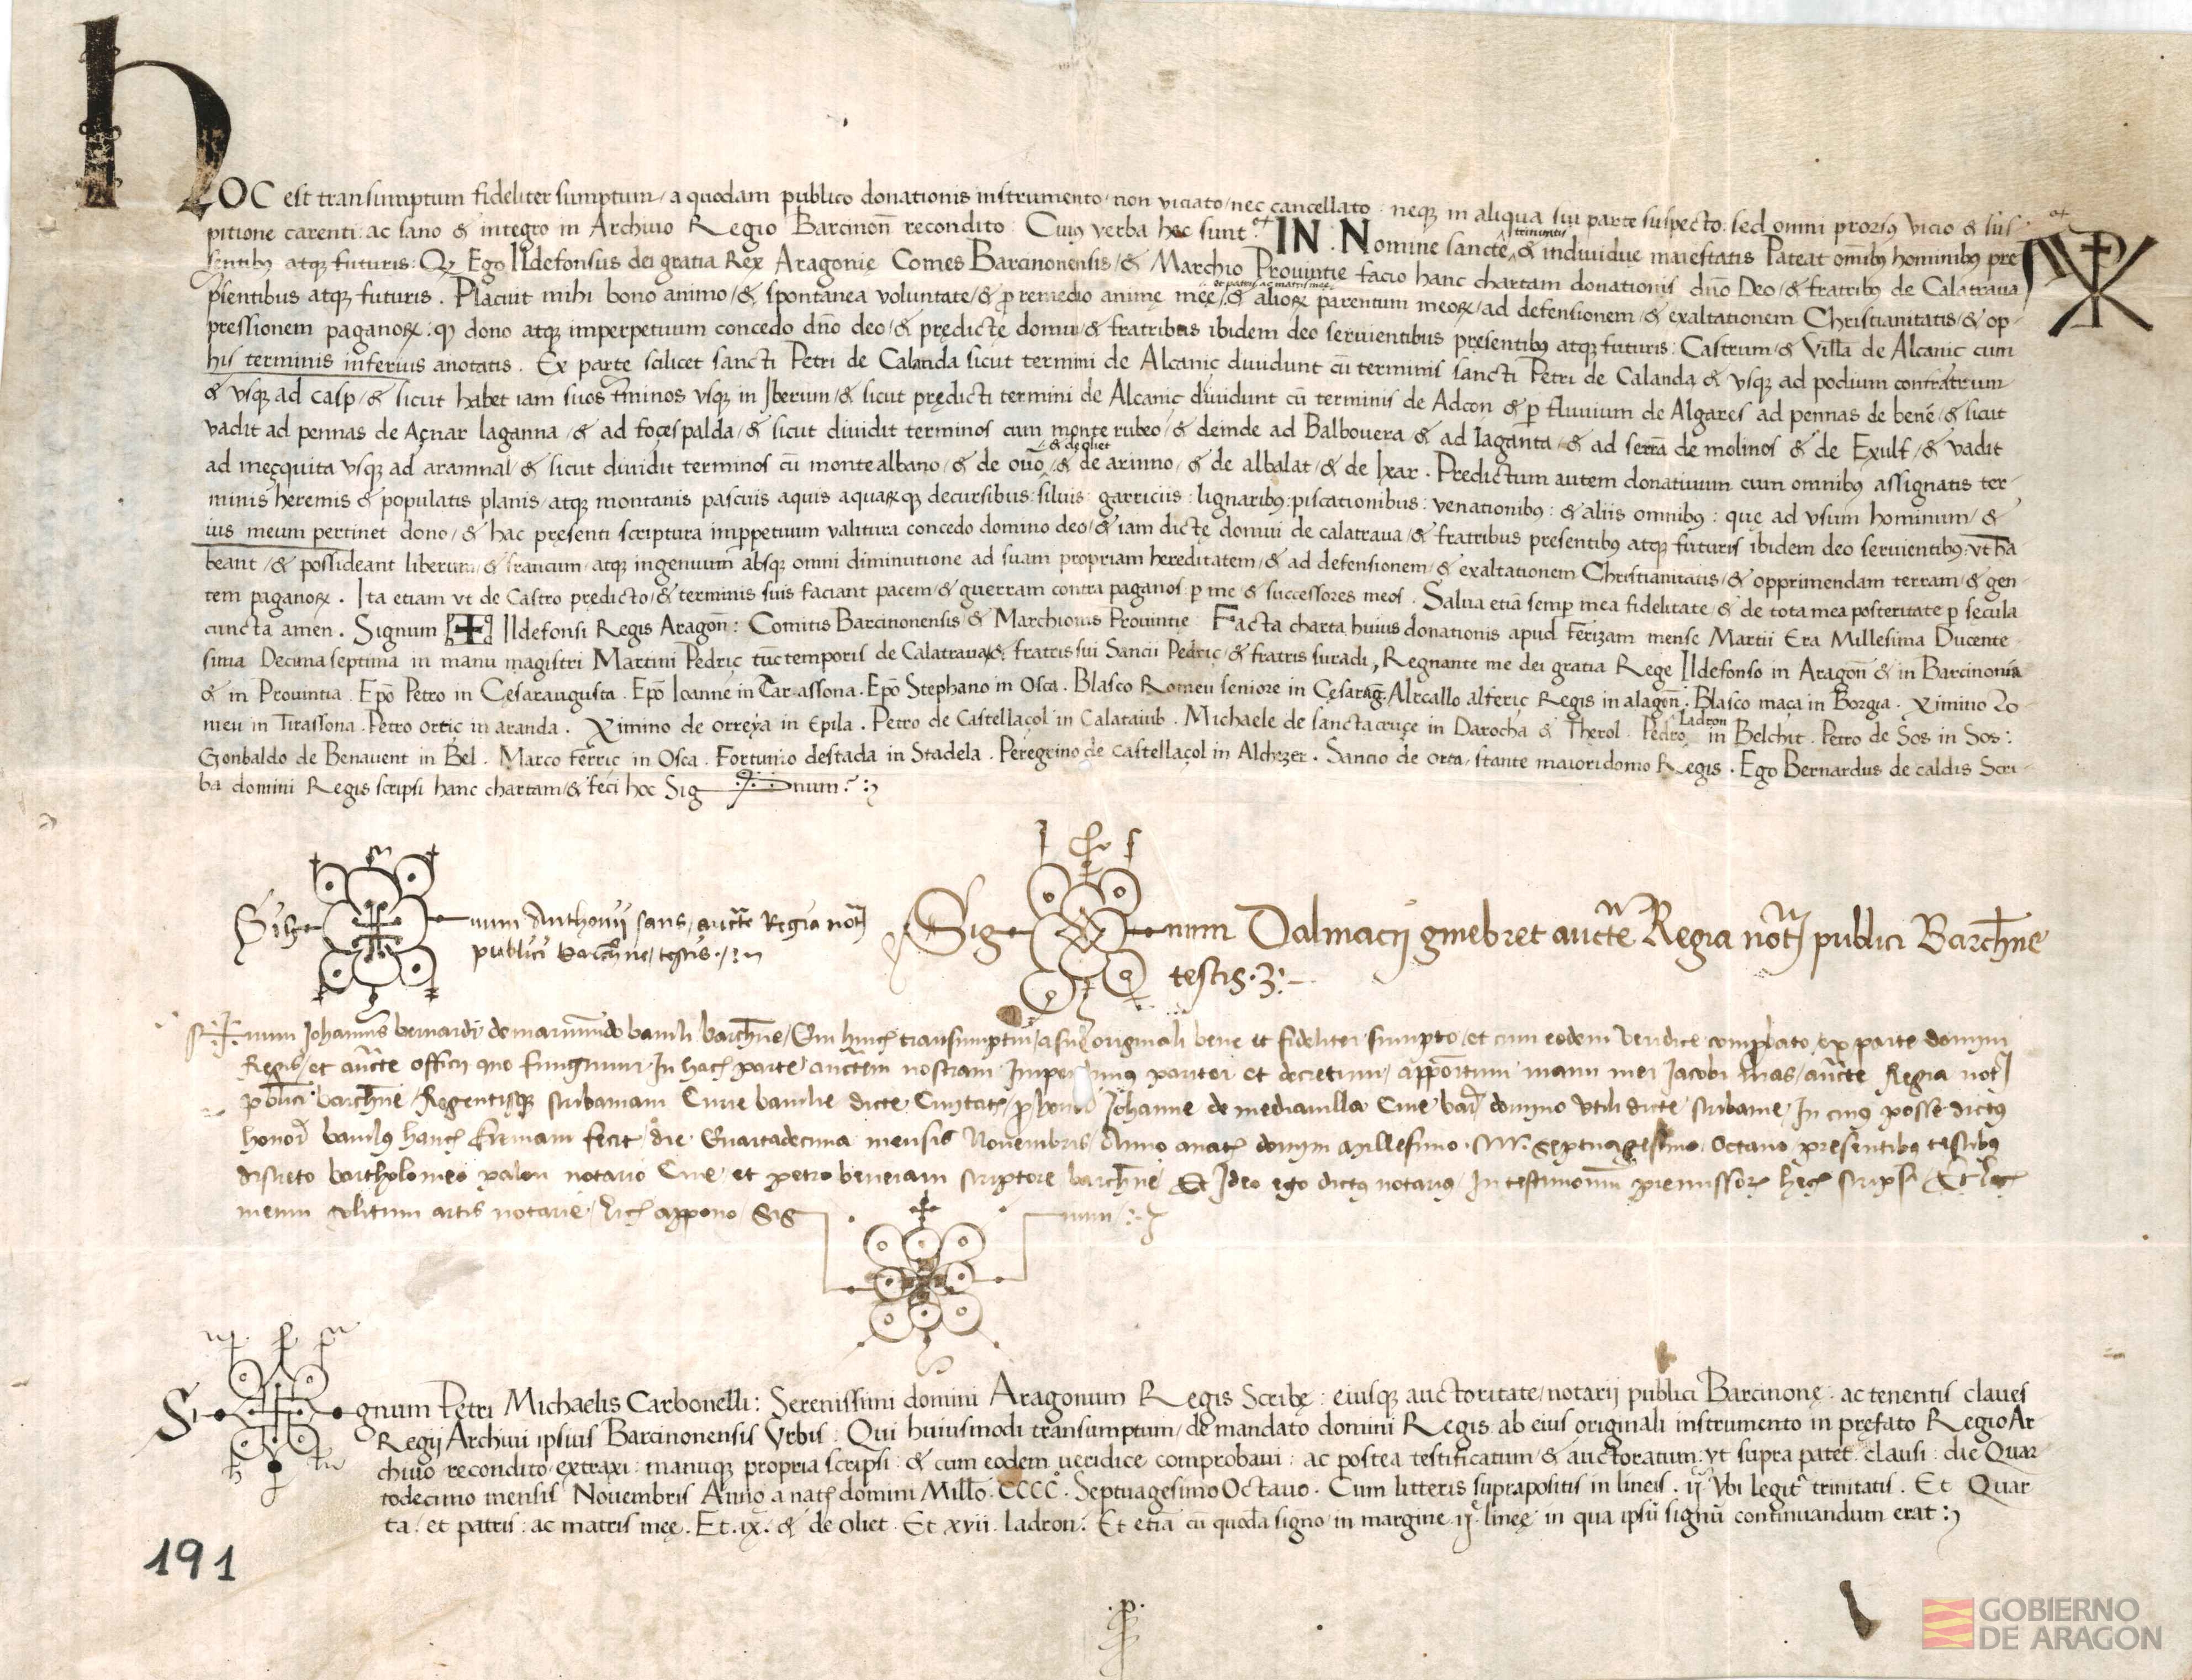 HOC est transumptum fideliter sumptum / a quodam publico donationis instrumento / non viciato / nec cancellato · neqȝ in aliqua sui parte suspecto: sed omni prorsꝰ vicio & sus
pitione carenti: ac sano & integro in Archiuo Regio Barcinoñ recondito: Cuiꝰ verba hec sunt: IN Nomine sanctę trinitatis & indiuidue maiestatis Pateat omībꝰ hominibꝰ prę
sentibꝰ atqȝ futuris: Qȝ Ego Ildefonsus dei gratia Rex Aragonię Comes Barcinonensis / & Marchio Prouintię facio hanc chartam donationis dño Deo / & fratribꝰ de Calatraua
psientibus atqȝ futuris . Placuit mihi bono animo / & spontanea voluntate / & ꝑ remedio animę meę / et patris ac matris meę & alioꝝ parentum meoꝝ / ad defensionem / & exaltationem Christianitatis / & op
pressionem paganoꝝ: qȝ dono atqȝ imperpetuum concedo dño deo / & prędictę domui / & fratribus ibidem deo seruientibus pręsentibꝰ atqȝ futuris: Castrum / & Villā de Alcanic cum
his terminis inferius anotatis . Ex parte scilicet sancti Petri de Calanda sicut termini de Alcaniç diuidunt cū terminis sancti Petri de Calanda & vsqȝ ad podium contratrum
& vsqȝ ad casp / & sicut habet iam suos t̄minos vsqȝ in Iberum / & sicut prędicti termini de Alcaniç diuidunt cū terminis de Adcon & ꝑ fluuium de Algares ad pennas de benē / & sicut
vadit ad pennas de Açnar laganna / & ad foçespalda / & sicut diuidit terminos cum monte rubeo / & deinde ad Balbouera & ad Iaganta / & ad serrā de molinos & de Exulf / & vadit
ad meçquita vsqȝ ad aramnal / & sicut diuidit terminos cū montealbano / & de ouo / & de oliet & de arinno / & de albalat / & de Ixar . Predictum autem donatiuum cum omnibꝰ assignatis ter
minis heremis & populatis planis / atqȝ montanis pascuis aquis aquaꝝqȝ decursibus: siluis: garriciis: lignaribꝰ: piscationibus: venationibꝰ: & aliis omnibꝰ: quę ad vsum hominum / &
ius meum pertinet dono / & hac pręsenti scriptura imꝑpetuum valitura concedo domino deo / & iam dictę domui de calatraua / & fratribus presentibꝰ atqȝ futuris ibidem deo seruientibꝰ: vt ha
beant / & possideant liberum / & francum / atqȝ ingenuum absqȝ omni diminutione ad suam propriam hereditatem / & ad defensionem / & exaltationem Christianitatis / & opprimendam terram / & gen
tem paganoꝝ . Ita etiam vt de Castro predicto / & terminis suis faciant pacem / & guerram contra paganos ꝑ me & successores meos . Salua etiā semꝑ mea fidelitate / & de tota mea posteritate ꝑ secula
cuncta amen . Signum Ildefonsi Regis Aragoñ: Comitis Barcinonensis / & Marchionis Prouintię Facta charta huius donationis apud Ferizam mense Martii Era Millesima Ducente
sima Decima septima in manu magistri Martini Pedriç tūc temporis de Calatraua / & fratris sui Sancii Pedriç / & fratris suradi, Regnante me dei gratia Rege Ildefonso in Aragoñ & in Barcinonia
& in Prouintia . Epō Petro in Cęsaraugusta . Epō Ioanne in Tarassona . Epō Stephano in Osca . Blasco Romeu seniore in Cęsaraug̃. Alrcallo alferiç Regis in alagoñ . Blasco maça in Borgia . Ximino Ro
meu in Tirassona . Petro ortiç in aranda . Ximino de orreya in Epila . Petro de Castellaçol in Calataiub . Michaele de sanctacruçe in Darocha & Therol . Pedro Ladron in Belchit . Petro de Sos in Sos:
Gonbaldo de Benauent in Bel . Marco ferriç in Osca . Fortunio destada in Stadela . Peregrino de castellaçol in Alchezer . Sancio de orta / stante maioridomo Regis . Ego Bernardus de caldis Scri
ba domini Regis scripsi hanc chartam / & feci hoc Sig num
Sig num Anthonij sans / auc̄te Regia not̄
publici barc̄hne / testis
Sig num Dalmacij ginebret auc̄te Regia not̄ publici Barc̄hne
testis
Sig num Johannis bernardi de marimundo baiuli barc̄hne / Qui huic transumpto / a suo originali bene et fideliter sumpto / et cum eodem veridice comprobato / ex parte domini
Regis / et auc̄te officij quo fungimur In hac parte auc̄tem nostram Impendimus pariter et decretum / appositum manu mei Jacobi mas / auc̄te Regia not̄
publici barc̄hne / Regentisqȝ scribaniam Curie baiulie dicte Ciuitatis / ꝑ Johanne de mediauilla Ciue bar̄ domino vtili dicte scribanie In cuiꝰ posse dictꝰ
honor̄ baiulꝰ hanc firmam fecit die Quartadecima mensis Nouembris Anno a nat̄ domini Millesimo CCCC septuagesimo Octauo presentibꝰ testibꝰ
discreto bartholomeo palou notario Ciue / et petro beneiam scriptore barc̄hne / Et Ideo ego dictꝰ notariꝰ / In testimonium premissoꝝ hec scripsi / Et hic
meum solitum artis notarie / hic appono / Sig num
Signum Petri Michaelis Carbonelli: Serenissimi domini Aragonum Regis Scribę: eiusqȝ auctoritate / notarij publici Barcinonę: ac tenentis claues
Regij Archiui ipsius Barcinonensis Vrbis: Qui huiusmodi transumptum / de mandato domini Regis ab eius originali instrumento in pręfato Regio Ar
chiuo recondito extraxi: manuqȝ propria scripsi: & cum eodem ueridice comprobaui: ac postea testificatum / & auctoratum: vt supra patet clausi: die Quar
todecimo mensis Nouembris Anno a nat̄ domini Mill̄o . CCCC° . Septuagesimo Octauo . Cum litteris suprapositis in lineis . ij vbi legit̄ trinitatis . Et Quar
ta / et patris: ac matris meę . Et . ix . & de oliet . Et xvij . ladron . Et etiā cū quodā signo in margine ij lineę in qua ipsū signū continuandum erat
191
GOBIERNO
DE ARAGON